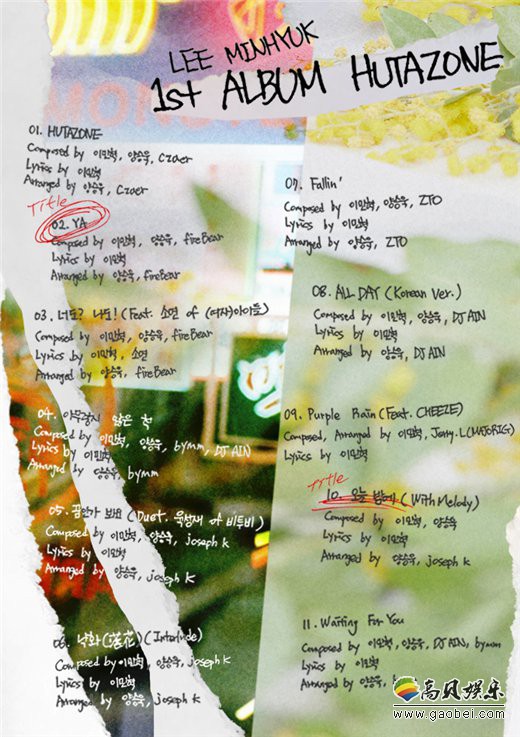 LEE MINHYUK
1st ALBUM HUTAZONE
01. HUTAZONE
Composed by 이민혁, 양승욱, Czaer
Lyrics by 이민혁
Arranged by 양승욱, Czaer
Title
02. YA
Composed by 이민혁, 양승욱, fireBear
Lyrics by 이민혁
Arranged by 양승욱, fireBear
03. 너도? 나도! (Feat. 소연 of (여자)아이들)
Composed by 이민혁, 양승욱, fireBear
Lyrics by 이민혁, 소연
Arranged by 양승욱, fireBear
04. 아무렇지 않은 척
Composed by 이민혁, 양승욱, bymm, DJ AIN
Lyrics by 이민혁
Arranged by 양승욱, bymm
05. 꿈인가 봐요 (Duet. 육성재 of 비투비)
Composed by 이민혁, 양승욱, joseph k
Lyrics by 이민혁
Arranged by 양승욱, joseph k
06. 낙화(落花) (Interlude)
Composed by 이민혁, 양승욱, joseph k
Lyrics by 이민혁
Arranged by 양승욱, joseph k
07. Fallin'
Composed by 이민혁, 양승욱, ZTO
Lyrics by 이민혁
Arranged by 양승욱, ZTO
08. ALL DAY (Korean Ver.)
Composed by 이민혁, 양승욱, DJ AIN
Lyrics by 이민혁
Arranged by 양승욱, DJ AIN
09. Purple Rain (Feat. CHEEZE)
Composed, Arranged by 이민혁, Jerry.L(MAJORIG)
Lyrics by 이민혁
Title
10. 오늘 밤에 (With Melody)
Composed by 이민혁, 양승욱
Lyrics by 이민혁
Arranged by 양승욱, joseph k
11. Waiting For You
Composed by 이민혁, 양승욱, DJ AIN, bymm
Lyrics by 이민혁
Arranged by 양승욱,
高贝娱乐
www.gaobei.com